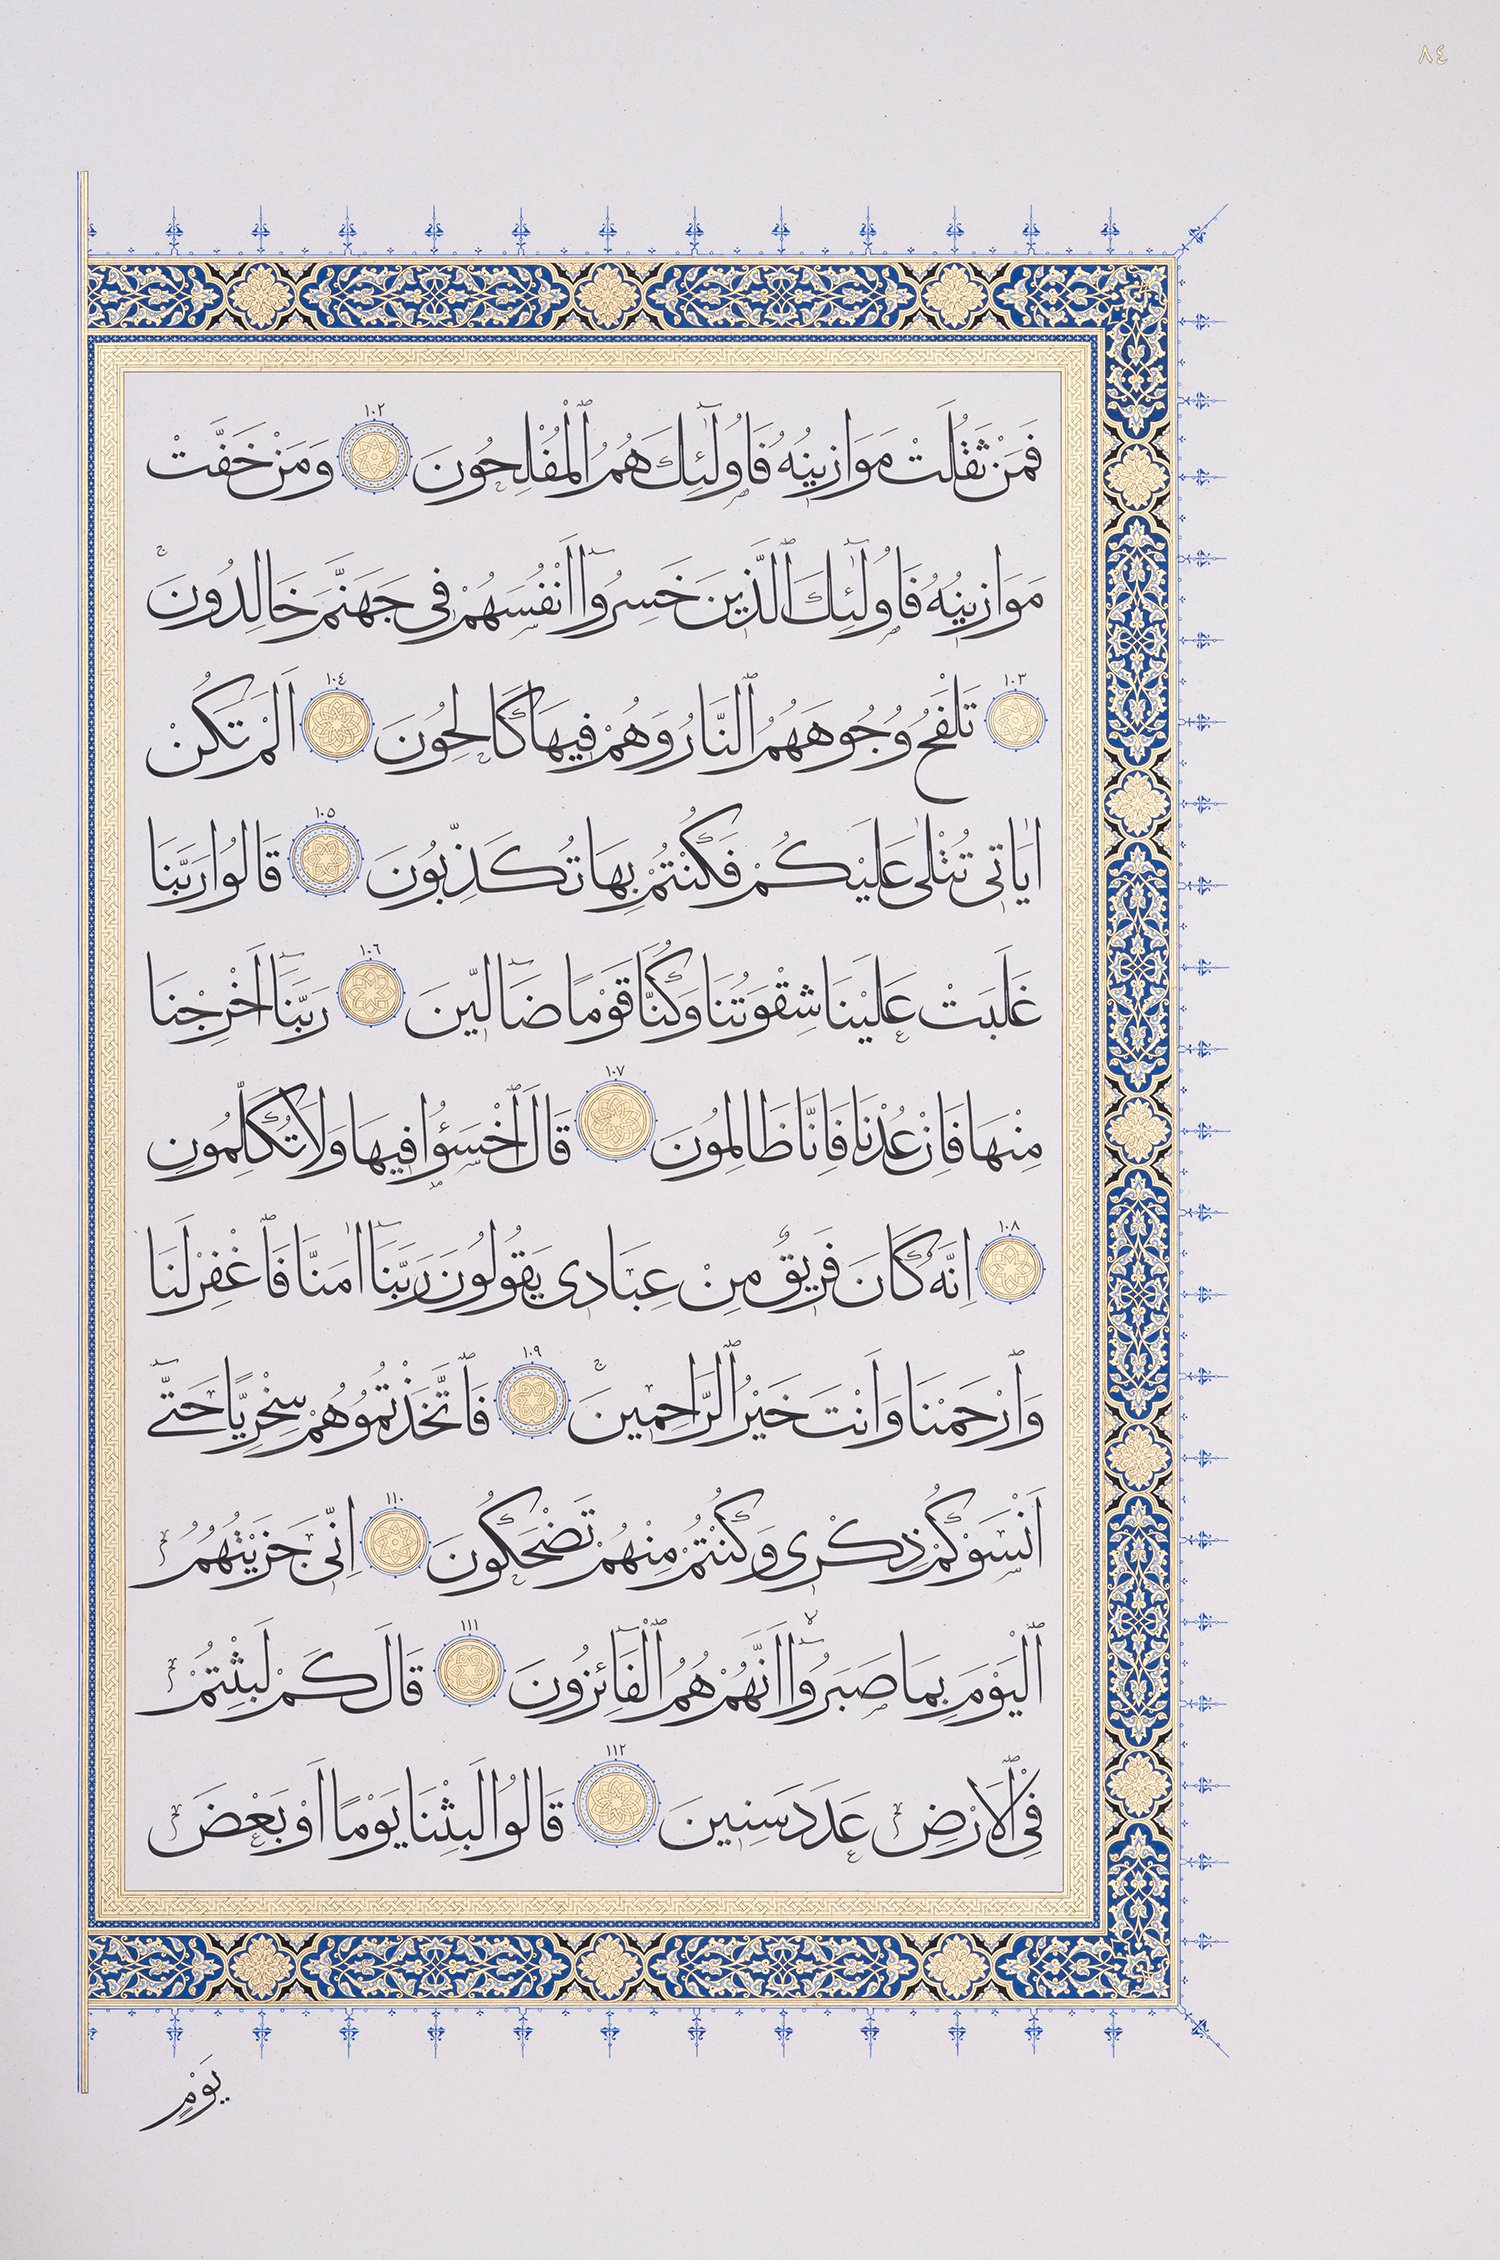 ٨٤
فَمَنْ ثَقُلَتْ مَوَازينُهُ فَاُولٰٓئِكَ هُمُ ٱلْمُفْلِحُونَ ١٠٢ وَمَنْ خَفَّتْ
مَوَازينُهُ فَاُولٰٓئِكَ ٱلَّذينَ خَسِرُٓوا اَنْفُسَهُمْ فى جَهَنَّمَ خَالِدُونَ
١٠٣ تَلْفَحُ وُجُوهَهُمُ ٱلنَّارُ وَهُمْ فيهَا كَالِحُونَ ١٠٤ اَلَمْ تَكُنْ
اٰيَاتى تُتْلٰى عَلَيْكُمْ فَكُنْتُمْ بِهَا تُكَذِّبُونَ ١٠٥ قَالُوا رَبَّنَا
غَلَبَتْ عَلَيْنَا شِقْوَتُنَا وَكُنَّا قَوْمًا ضَٓالّينَ ١٠٦ رَبَّنَٓا اَخْرِجْنَا
مِنْهَا فَاِنْ عُدْنَا فَاِنَّا ظَالِمُونَ ١٠٧ قَالَ ٱخْسَؤُا فيهَا وَلَا تُكَلِّمُونِ
١٠٨ اِنَّهُ كَانَ فَريقٌ مِنْ عِبَادى يَقُولُونَ رَبَّنَٓا اٰمَنَّا فَٱغْفِرْ لَنَا
وَٱرْحَمْنَا وَاَنْتَ خَيْرُ ٱلرَّاحِمينَ ١٠٩ فَٱتَّخَذْتُمُوهُمْ سِخْرِيًّا حَتّٰٓى
اَنْسَوْكُمْ ذِكْرى وَكُنْتُمْ مِنْهُمْ تَضْحَكُونَ ١١٠ اِنّى جَزَيْتُهُمُ
ٱلْيَوْمَ بِمَا صَبَرُٓوا اَنَّهُمْ هُمُ ٱلْفَٓائِزُونَ ١١١ قَالَ كَمْ لَبِثْتُمْ
فِى ٱلْاَرْضِ عَدَدَ سِنينَ ١١٢ قَالُوا لَبِثْنَا يَوْمًا اَوْ بَعْضَ
يَوْمٍ